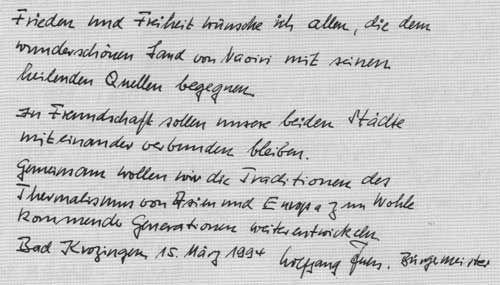 Frieden und Freiheit wünsche ich allen, die dem
wunderschönen Land von Naoiri mit seinen
heilenden Quellen begegnen
In Freundschaft sollen unsere beiden Städte
miteinander verbunden bleiben.
Gemeinsam wollen wir die Traditionen des
Thermalismus von Asien und Europa zum Wohle
kommender Generationen weiterentwickeln
Bad Krozingen 15. März 1994 Wolfgang Fuchs, Bürgermeister